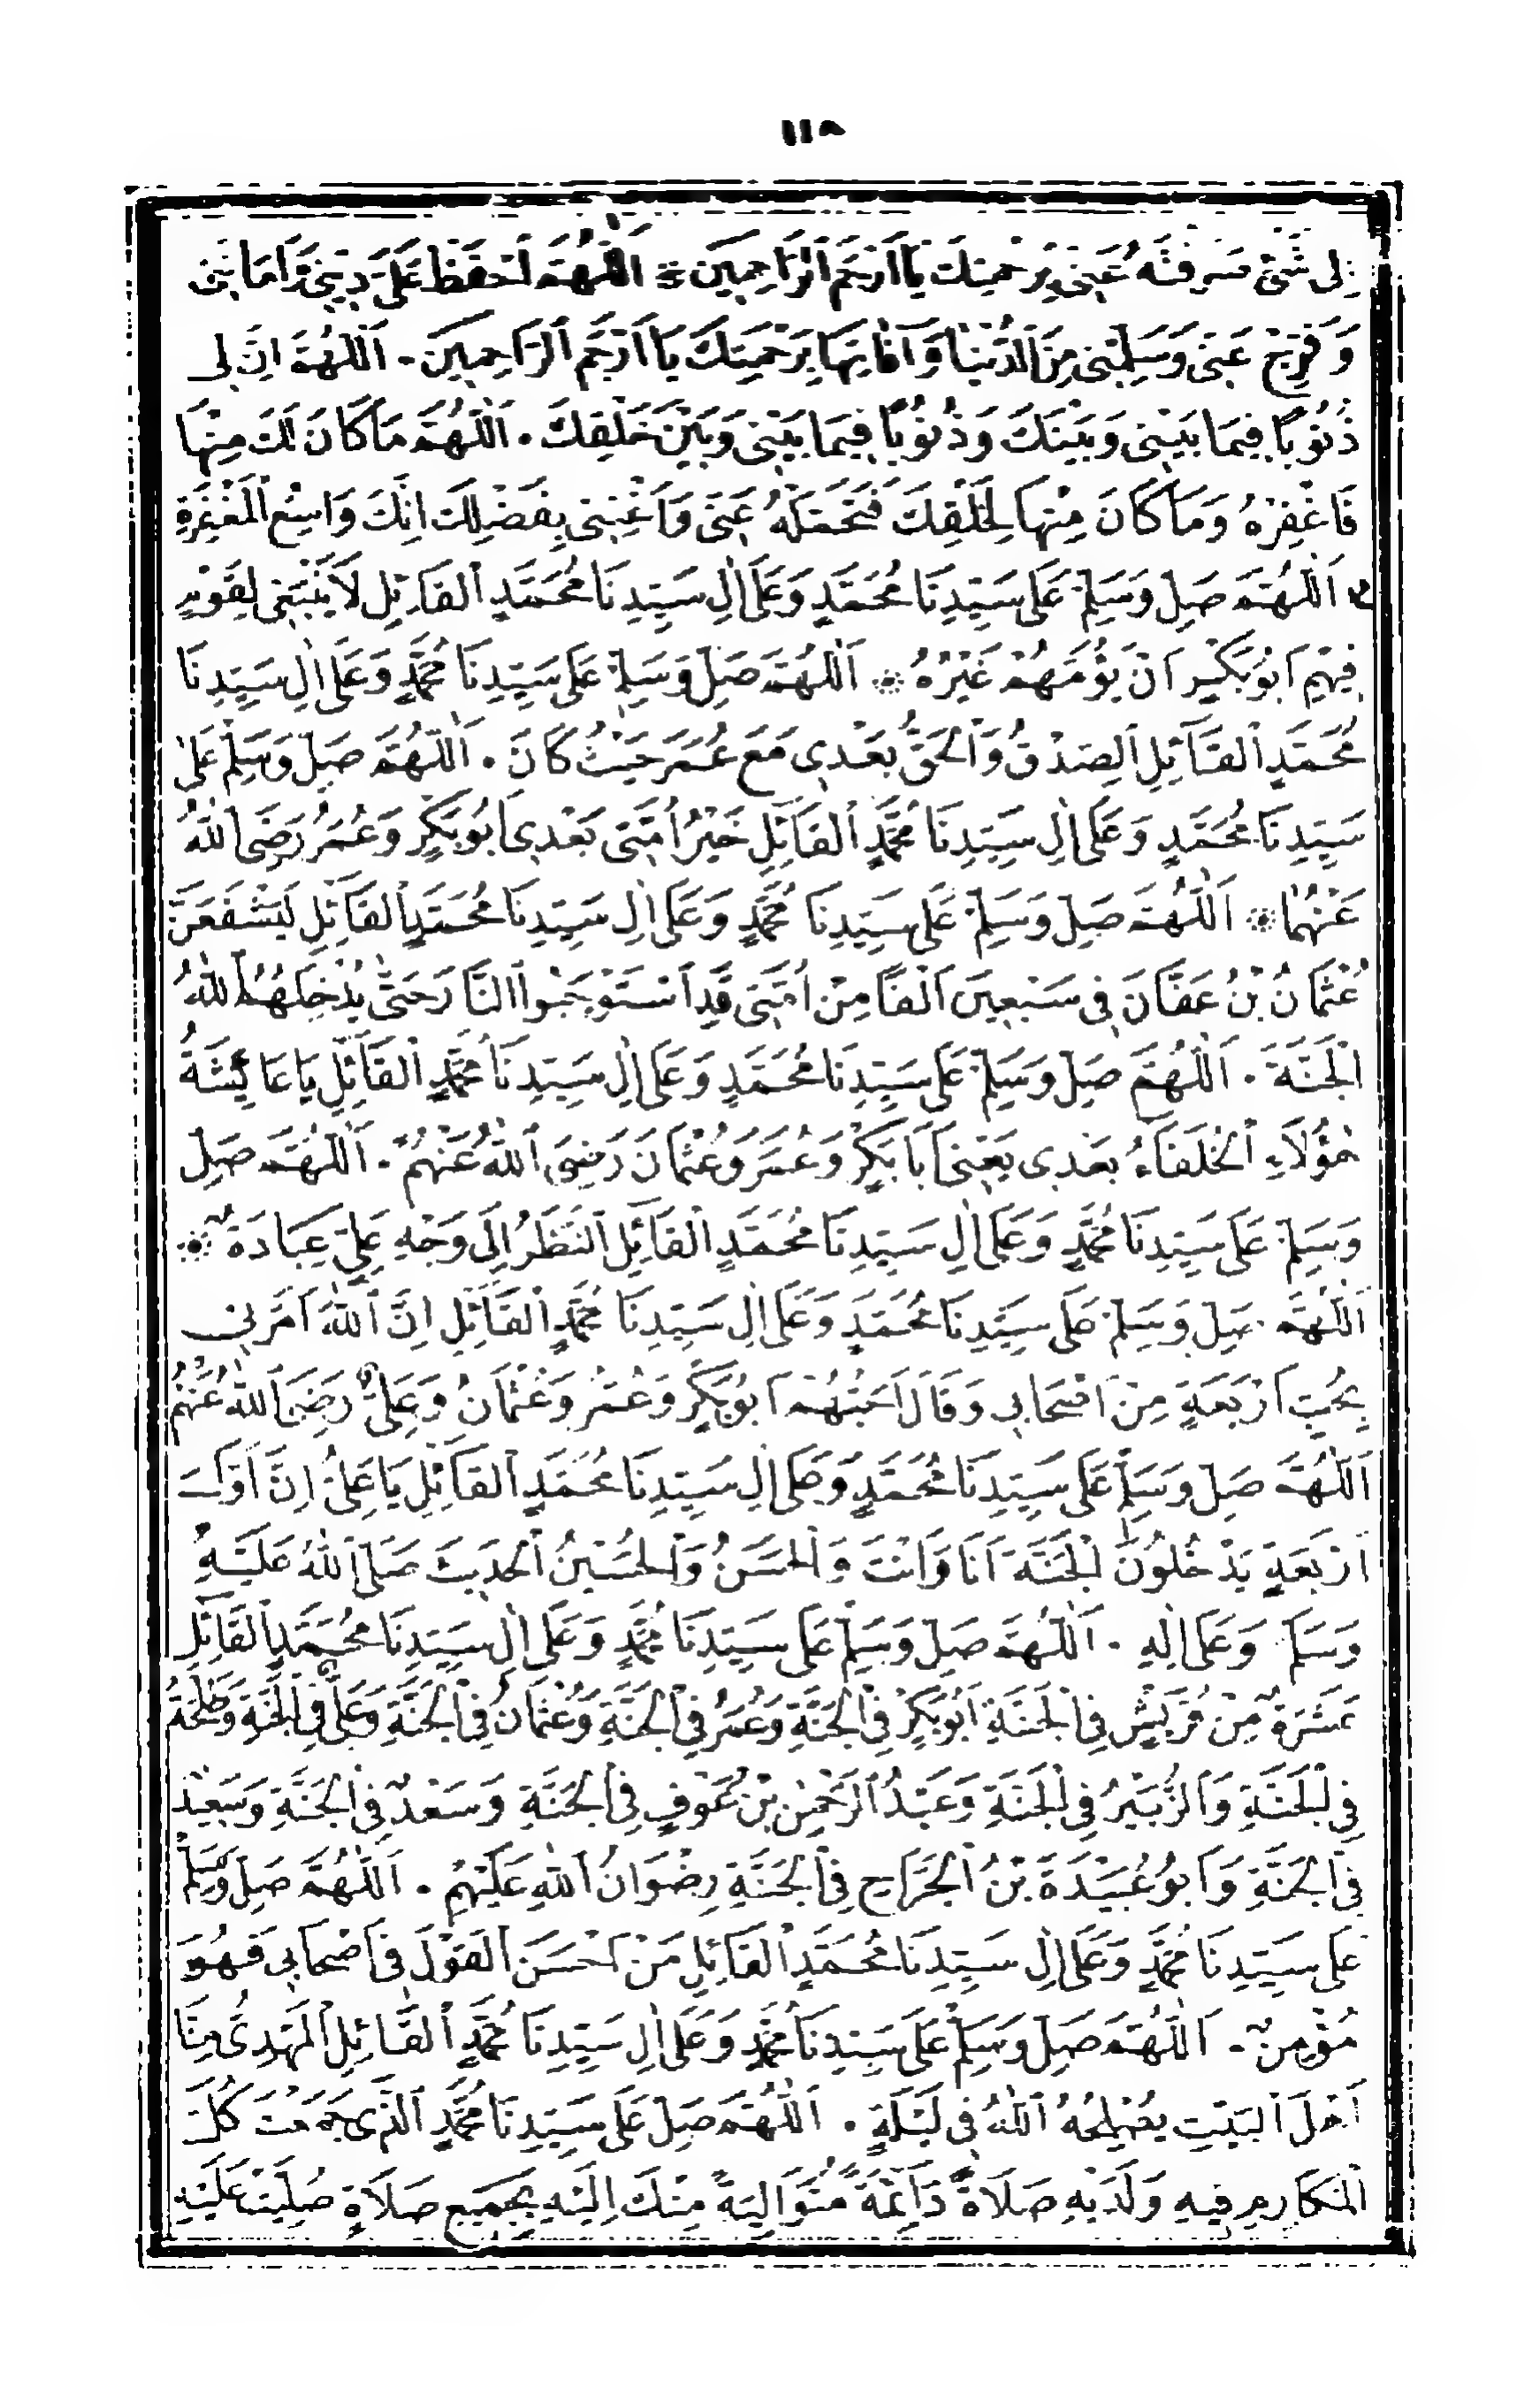 ١١٥
لِى شَىْءٍ صَرَفْتَهُ عَنِّى بِرَحْمَتِكَ يَا اَرْحَمَ الرَّاحِمِينَ ۞ اَللّٰهُمَّ احْفَظْ عَلَىَّ دِينِى وَاَمَانَتِى
وَفَرِّجْ عَنِّى وَسَلِّمْنِى مِنَ الدُّنْيَا وَآفَاتِهَا بِرَحْمَتِكَ يَا اَرْحَمَ الرَّاحِمِينَ . اَللّٰهُمَّ اِنَّ لِى
ذُنُوبًا فِيمَا بَيْنِى وَبَيْنَكَ وَذُنُوبًا فِيمَا بَيْنِى وَبَيْنَ خَلْقِكَ . اَللّٰهُمَّ مَا كَانَ لَكَ مِنْهَا
فَاغْفِرْهُ وَمَا كَانَ مِنْهَا لِخَلْقِكَ فَتَحَمَّلْهُ عَنِّى وَاَغْنِنِى بِفَضْلِكَ اِنَّكَ وَاسِعُ الْمَغْفِرَةِ
اَللّٰهُمَّ صَلِّ وَسَلِّمْ عَلَى سَيِّدِنَا مُحَمَّدٍ وَعَلَى اٰلِ سَيِّدِنَا مُحَمَّدٍ الْقَائِلِ لَا يَنْبَغِى لِقَوْمٍ
فِيهِمْ اَبُو بَكْرٍ اَنْ يَؤُمَّهُمْ غَيْرُهُ ۞ اَللّٰهُمَّ صَلِّ وَسَلِّمْ عَلَى سَيِّدِنَا مُحَمَّدٍ وَعَلَى اٰلِ سَيِّدِنَا
مُحَمَّدٍ الْقَائِلِ اَلصِّدْقُ وَالْحَقُّ بَعْدِى مَعَ عُمَرَ حَيْثُ كَانَ . اَللّٰهُمَّ صَلِّ وَسَلِّمْ عَلَى
سَيِّدِنَا مُحَمَّدٍ وَعَلَى اٰلِ سَيِّدِنَا مُحَمَّدٍ الْقَائِلِ خَيْرُ اُمَّتِى بَعْدِى اَبُو بَكْرٍ وَعُمَرُ رَضِىَ اللّٰهُ
عَنْهُمَا ۞ اَللّٰهُمَّ صَلِّ وَسَلِّمْ عَلَى سَيِّدِنَا مُحَمَّدٍ وَعَلَى اٰلِ سَيِّدِنَا مُحَمَّدٍ الْقَائِلِ لَيَشْفَعَنَّ
عُثْمَانُ بْنُ عَفَّانَ فِى سَبْعِينَ اَلْفًا مِنْ اُمَّتِى قَدِ اسْتَوْجَبُوا النَّارَ حَتَّى يُدْخِلَهُمُ اللّٰهُ
الْجَنَّةَ . اَللّٰهُمَّ صَلِّ وَسَلِّمْ عَلَى سَيِّدِنَا مُحَمَّدٍ وَعَلَى اٰلِ سَيِّدِنَا مُحَمَّدٍ الْقَائِلِ يَا عَائِشَةُ
هٰؤُلَاءِ الْخُلَفَاءُ بَعْدِى يَعْنِى اَبَا بَكْرٍ وَعُمَرَ وَعُثْمَانَ رَضِىَ اللّٰهُ عَنْهُمْ . اَللّٰهُمَّ صَلِّ
وَسَلِّمْ عَلَى سَيِّدِنَا مُحَمَّدٍ وَعَلَى اٰلِ سَيِّدِنَا مُحَمَّدٍ الْقَائِلِ النَّظَرُ اِلَى وَجْهِ عَلِىٍّ عِبَادَةٌ ۞
اَللّٰهُمَّ صَلِّ وَسَلِّمْ عَلَى سَيِّدِنَا مُحَمَّدٍ وَعَلَى اٰلِ سَيِّدِنَا مُحَمَّدٍ الْقَائِلِ اِنَّ اللّٰهَ اَمَرَنِى
بِحُبِّ اَرْبَعَةٍ مِنْ اَصْحَابِى وَقَالَ اَحِبَّهُمْ اَبُو بَكْرٍ وَعُمَرُ وَعُثْمَانُ وَعَلِىٌّ رَضِىَ اللّٰهُ عَنْهُمْ
اَللّٰهُمَّ صَلِّ وَسَلِّمْ عَلَى سَيِّدِنَا مُحَمَّدٍ وَعَلَى اٰلِ سَيِّدِنَا مُحَمَّدٍ الْقَائِلِ يَا عَلِىُّ اِنَّ اَوَّلَ
اَرْبَعَةٍ يَدْخُلُونَ الْجَنَّةَ اَنَا وَاَنْتَ وَالْحَسَنُ وَالْحُسَيْنُ الْحَدِيثَ صَلَّى اللّٰهُ عَلَيْهِ
وَسَلَّمَ وَعَلَى اٰلِهِ . اَللّٰهُمَّ صَلِّ وَسَلِّمْ عَلَى سَيِّدِنَا مُحَمَّدٍ وَعَلَى اٰلِ سَيِّدِنَا مُحَمَّدٍ الْقَائِلِ
عَشَرَةٌ مِنْ قُرَيْشٍ فِى الْجَنَّةِ اَبُو بَكْرٍ فِى الْجَنَّةِ وَعُمَرُ فِى الْجَنَّةِ وَعُثْمَانُ فِى الْجَنَّةِ وَعَلِىٌّ فِى الْجَنَّةِ وَطَلْحَةُ
فِى الْجَنَّةِ وَالزُّبَيْرُ فِى الْجَنَّةِ وَعَبْدُ الرَّحْمٰنِ بْنُ عَوْفٍ فِى الْجَنَّةِ وَسَعْدٌ فِى الْجَنَّةِ وَسَعِيدٌ
فِى الْجَنَّةِ وَاَبُو عُبَيْدَةَ بْنُ الْجَرَّاحِ فِى الْجَنَّةِ رِضْوَانُ اللّٰهِ عَلَيْهِمْ . اَللّٰهُمَّ صَلِّ وَسَلِّمْ
عَلَى سَيِّدِنَا مُحَمَّدٍ وَعَلَى اٰلِ سَيِّدِنَا مُحَمَّدٍ الْقَائِلِ مَنْ اَحْسَنَ الْقَوْلَ فِى اَصْحَابِى فَهُوَ
مُؤْمِنٌ . اَللّٰهُمَّ صَلِّ وَسَلِّمْ عَلَى سَيِّدِنَا مُحَمَّدٍ وَعَلَى اٰلِ سَيِّدِنَا مُحَمَّدٍ الْقَائِلِ الْمَهْدِىُّ مِنَّا
اَهْلَ الْبَيْتِ يُصْلِحُهُ اللّٰهُ فِى لَيْلَةٍ . اَللّٰهُمَّ صَلِّ عَلَى سَيِّدِنَا مُحَمَّدٍ الَّذِى جَمَعْتَ كُلَّ
الْمَكَارِمِ فِيهِ وَلَدَيْهِ صَلَاةً دَائِمَةً مُتَوَالِيَةً مِنْكَ اِلَيْهِ بِجَمِيعِ صَلَاةٍ صُلِّيَتْ عَلَيْهِ